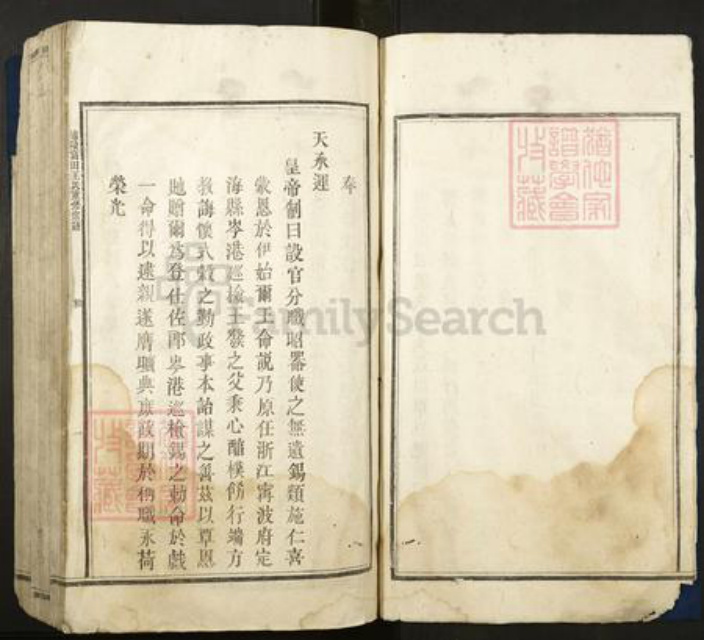 奉
天承運
皇帝制曰設官分職昭器使之無遺錫類施仁喜
蒙恩於伊始爾王命説乃原任浙江甯波府定
海縣岑港巡檢王發之父秉心醕樸飭行端方
教誨懷式穀之勤政事本詒謀之善茲以覃恩
貤贈爾為登仕佐郎岑港巡檢錫之勅命於戲
一命得以逮親遂膺曠典庶後期於稱職永荷
榮光
FamilySearch